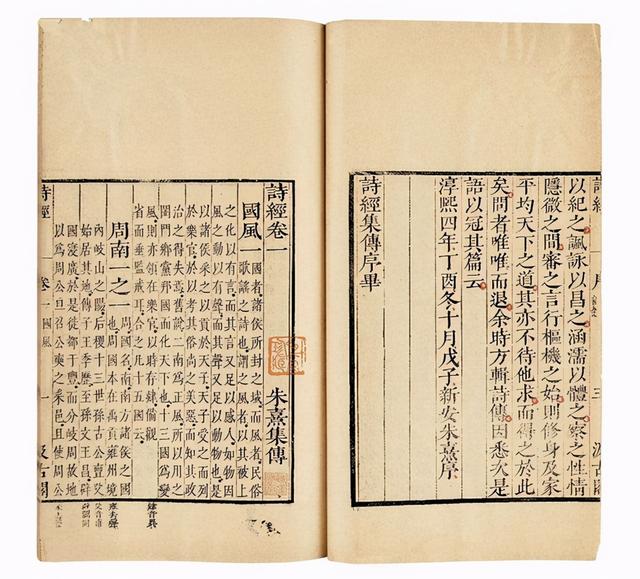 詩經 序 三 汲古閣
以紀之諷詠以昌之涵濡以體之察之性情
隱微之間審之言行樞機之始則修身及家
平均天下之道其亦不待他求而得之於此
矣問者唯唯而退余時方輯詩傳因悉次是
語以冠其篇云
淳熙四年丁酉冬十月戊子新安朱熹序
詩經集傳序畢
詩經卷一 朱熹集傳
國風一 國者諸侯所封之域而風者民俗
歌謠之詩也謂之風者以其被上
之化以有言而其言又足以感人如物因
風之動以有聲而其聲又足以動物也是
以諸侯采之以貢於天子天子受之而列
於樂官於以考其俗尚之美惡而知其政
治之得失焉舊說二南為正風所以用之
閨門鄉黨邦國而化天下也十三國為變
風則亦領在樂官以時存肄備觀
省而垂監戒耳合之凡十五國云
周南一之一 周國名南南方諸侯之國
也周國本在禹貢雍州境
內岐山之陽后稷十三世孫古公亶父
始居其地傳子王季歷至孫文王昌辟
國寖廣於是徙都于豐而分岐周故地
以為周公旦召公奭之采邑且使周公
詩經 卷一 國風 一 汲古閣
肄音異
雍去聲
父音甫